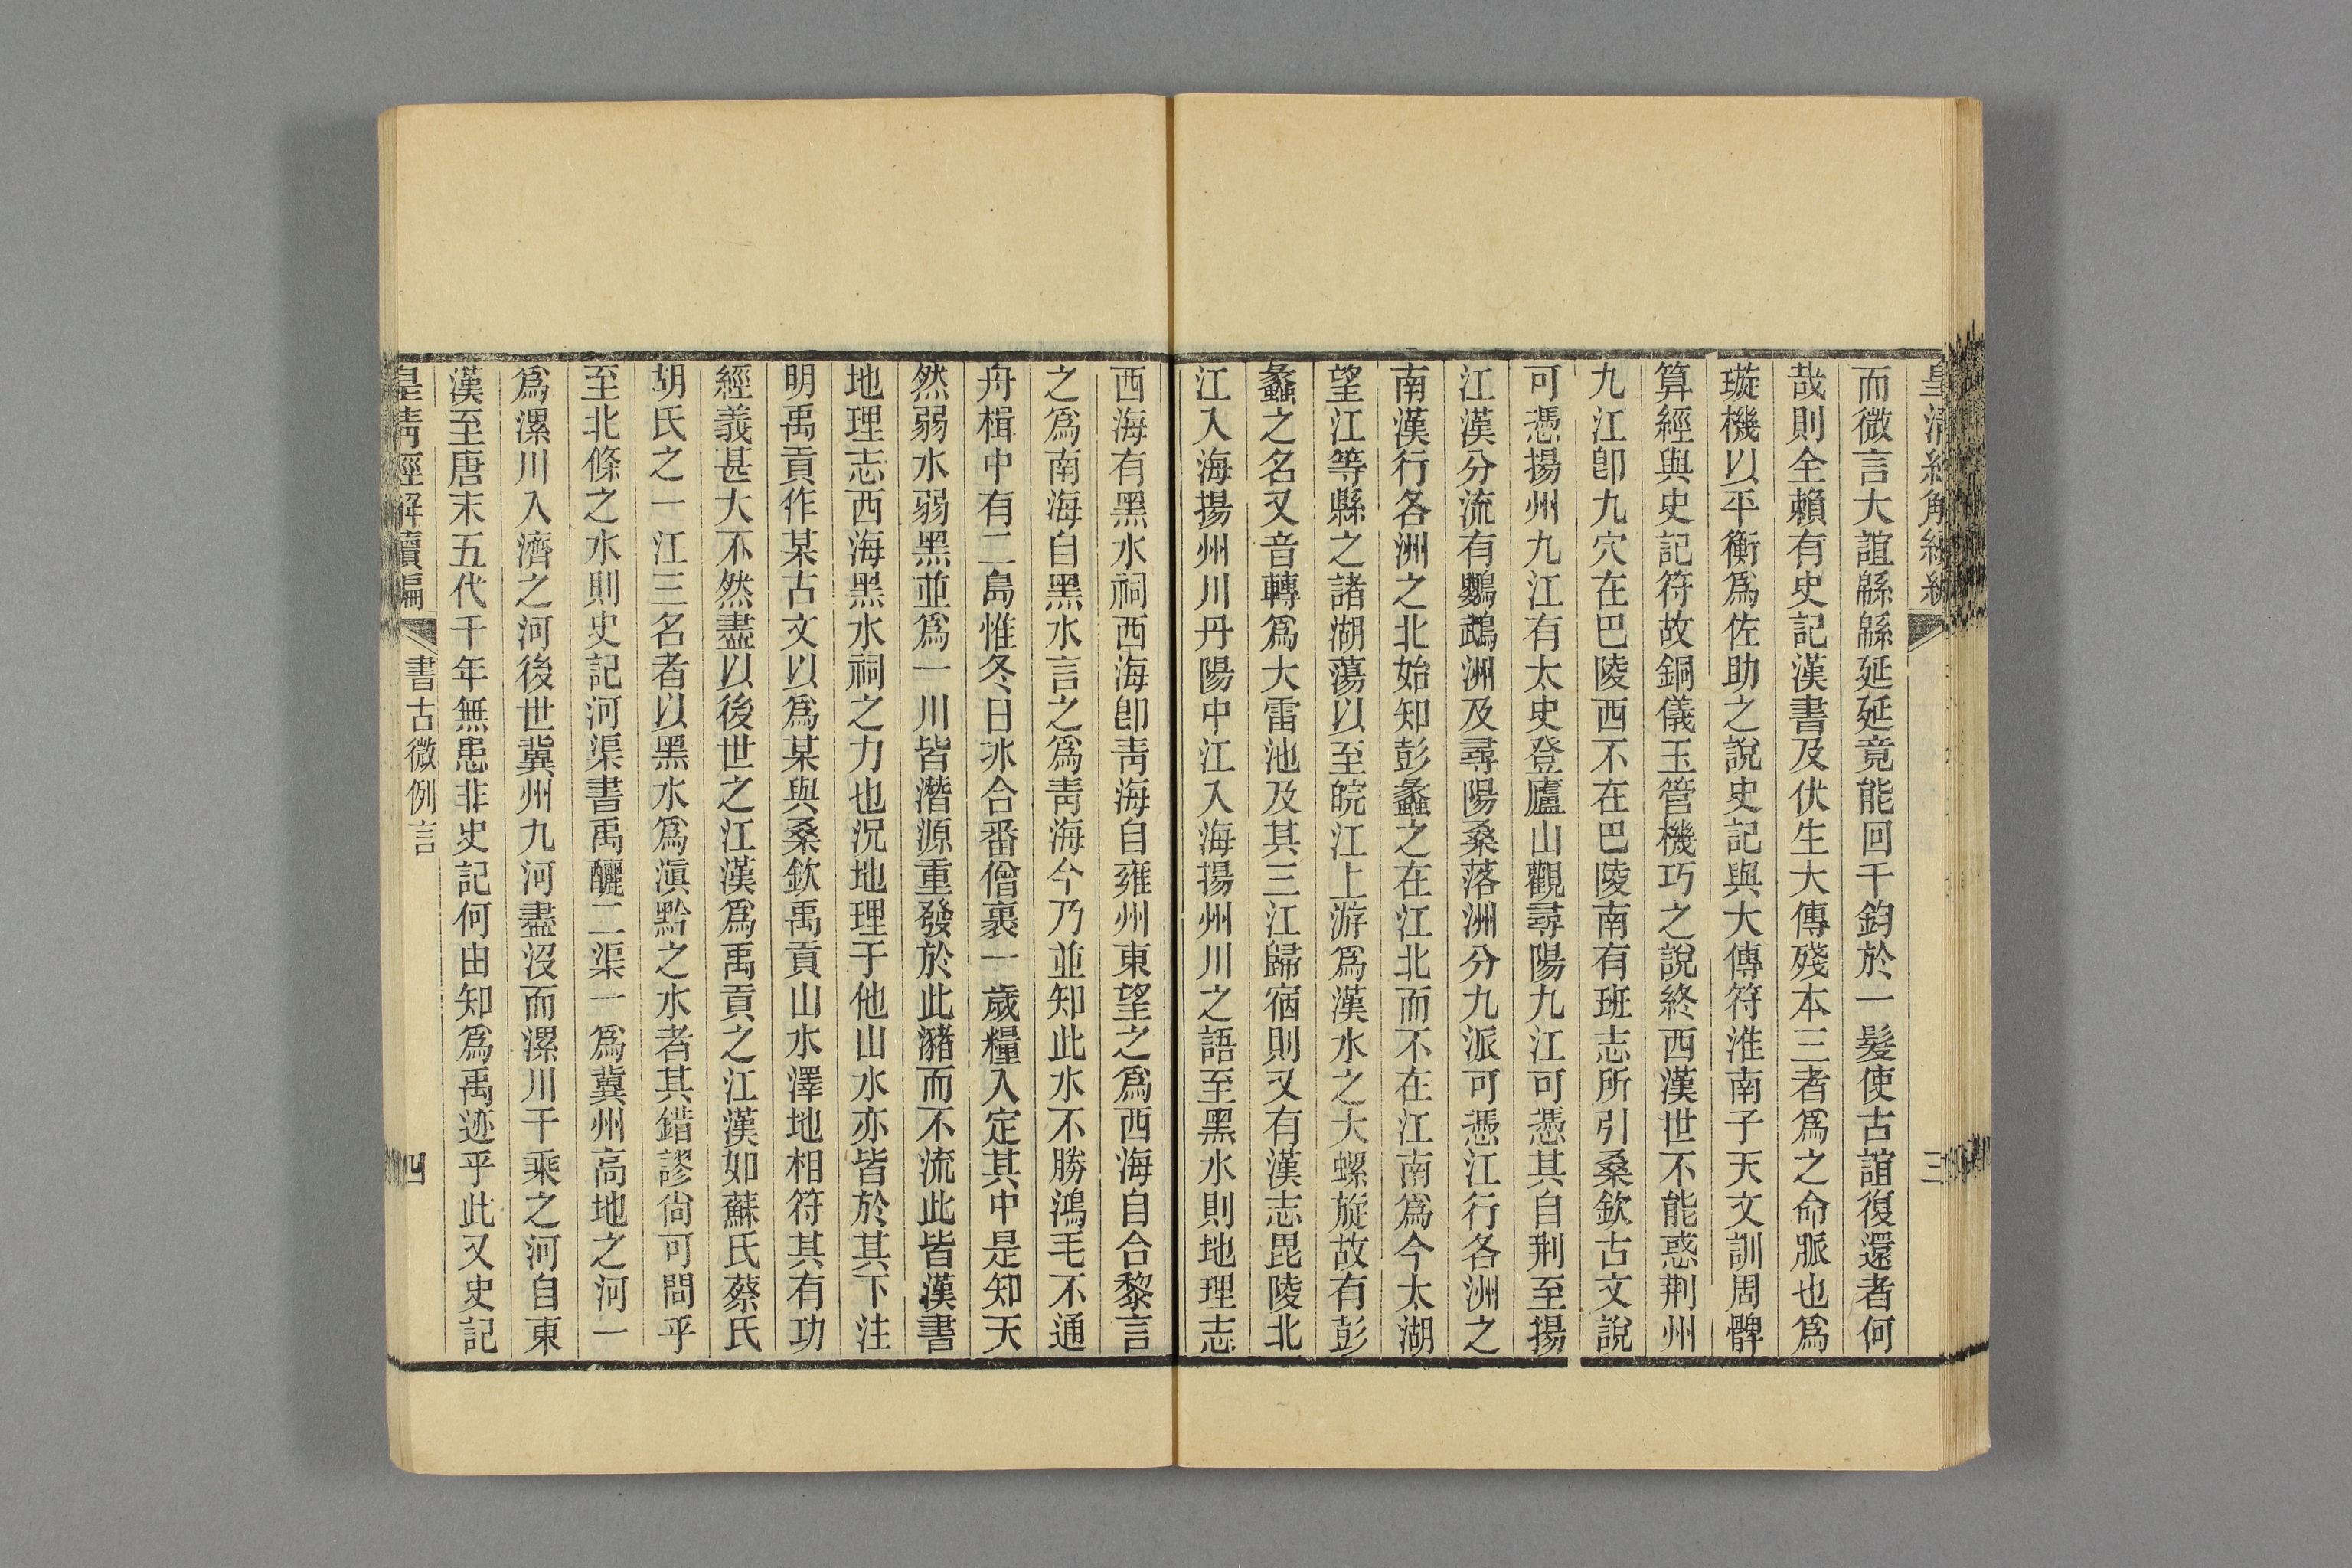 皇清經解續編
三
而微言大誼緜緜延延竟能回千鈞於一髮使古誼復還者何
哉則全賴有史記漢書及伏生大傳殘本三者爲之命脈也爲
璇機以平衡爲佐助之說史記與大傳符淮南子天文訓周髀
算經與史記符故銅儀玉管機巧之說終西漢世不能惑荆州
九江卽九穴在巴陵西不在巴陵南有班志所引桑欽古文說
可憑揚州九江有太史登廬山觀尋陽九江可憑其自荆至揚
江漢分流有鸚鵡洲及尋陽桑落洲分九派可憑江行各洲之
南漢行各洲之北始知彭蠡之在江北而不在江南爲今太湖
望江等縣之諸湖蕩以至皖江上游爲漢水之大螺旋故有彭
蠡之名又音轉爲大雷池及其三江歸宿則又有漢志毘陵北
江入海揚州川丹陽中江入海揚州川之語至黑水則地理志
西海有黑水祠西海卽靑海自雍州東望之爲西海自合黎言
之爲南海自黑水言之爲靑海今乃並知此水不勝鴻毛不通
舟楫中有二島惟冬日冰合番僧裹一歲糧入定其中是知天
然弱水弱黑並爲一川皆潛源重發於此瀦而不流此皆漢書
地理志西海黑水祠之力也況地理于他山水亦皆於其下注
明禹貢作某古文以爲某與桑欽禹貢山水澤地相符其有功
經義甚大不然盡以後世之江漢爲禹貢之江漢如蘇氏蔡氏
胡氏之一江三名者以黑水爲滇黔之水者其錯謬尙可問乎
至北條之水則史記河渠書禹釃二渠一爲冀州高地之河一
爲漯川入濟之河後世冀州九河盡沒而漯川千乘之河自東
漢至唐末五代千年無患非史記何由知爲禹迹乎此又史記
皇清經解續編
書古微例言
四